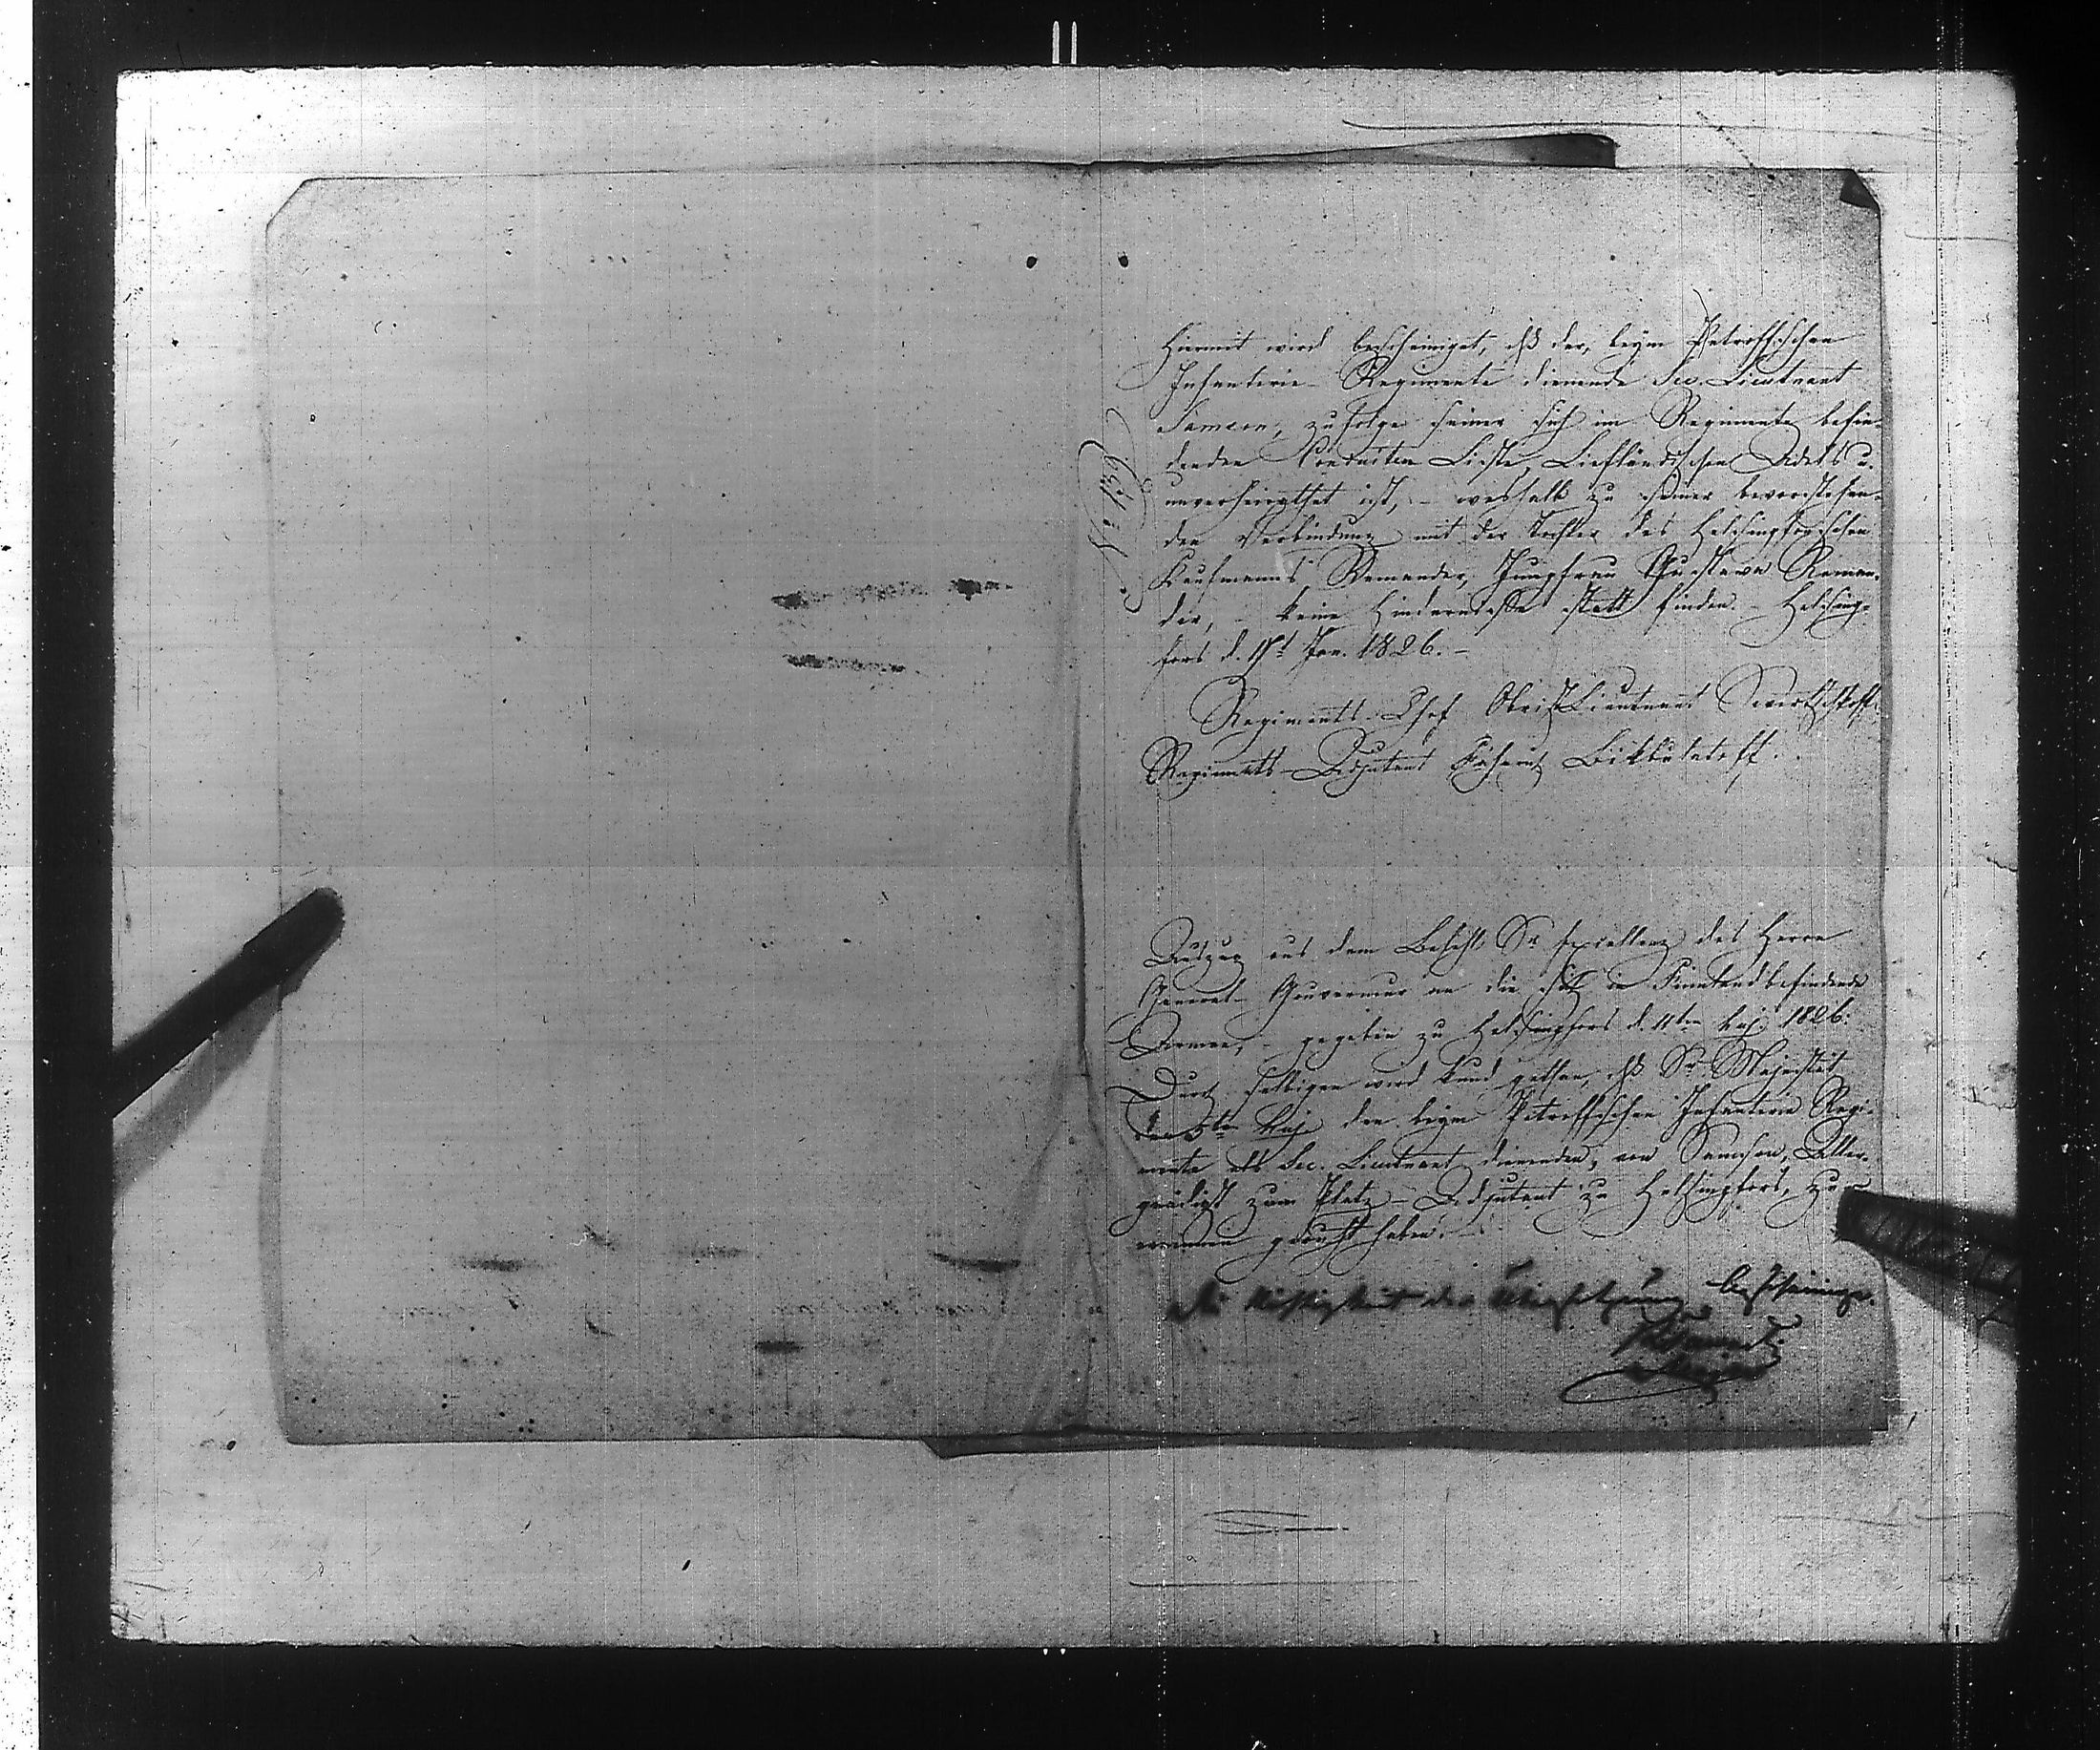 Hiermit wird bescheiniget, daß der, beym Petroffschen
Infanterie-Regimente dienende Sec. Lieutnant
Samson, zufolge seiner sich im Regimente befin-
denden Conduiten Liste, Liefländischen Adels u.
unverheirathet ist, – weshalb zu seiner bevorstehen-
den Verbindung mit der Tochter des Helsingforsschen
Kaufmanns Remander, Jungfrau Gustava Reman-
der, – keine Hindernisse statt finden. – Helsing-
fors d. Jan. 1826. –
Regiments-Chef ObristLieutnant
Regiments-Adjutant Fähnr. Bikbulatoff.
Auszug aus dem Befehl Sr Excellenz des Herrn
General-Gouverneur an die sich in Finnland befindende
Armee, – gegeben zu Helsingfors d. 11ten May 1826.
Durch selbigen wird kund gethan, daß Sr Majestät
den 5ten May den beym Petroffschen Infanterie Regi-
mente als Sec. Lieutnant dienenden, von Samson, Aller-
gnädigst zum Platz-Adjutant zu Helsingfors, zu
ernennen geruht haben. –
die Richtigkeit der Übersetzung bescheinige.